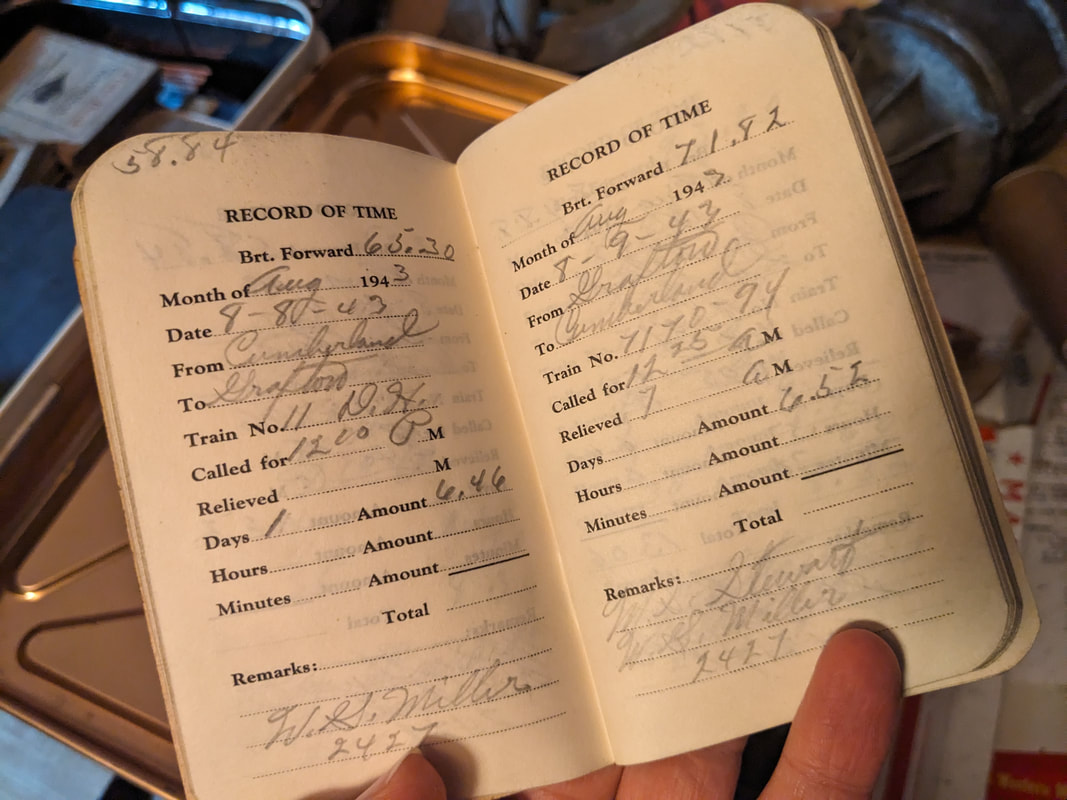 58.84
RECORD OF TIME
Brt. Forward 65.30
Month of Aug 1943
Date 8-8-43
From Cumberland
To Grafton
Train No. 11 D.H.
Called for 12 00 P M
Relieved M
Days 1 Amount 6.46
Hours Amount
Minutes Amount
Total
Remarks:
W. G. Miller
2427
RECORD OF TIME
Brt. Forward 71.82
Month of Aug 1943
Date 8-9-43
From Grafton
To Cumberland
Train No. 7170-94
Called for 12 25 a M
Relieved 7 a M
Days Amount 6.52
Hours Amount
Minutes Amount
Total
Remarks:
Stewart
W. G. Miller
2427